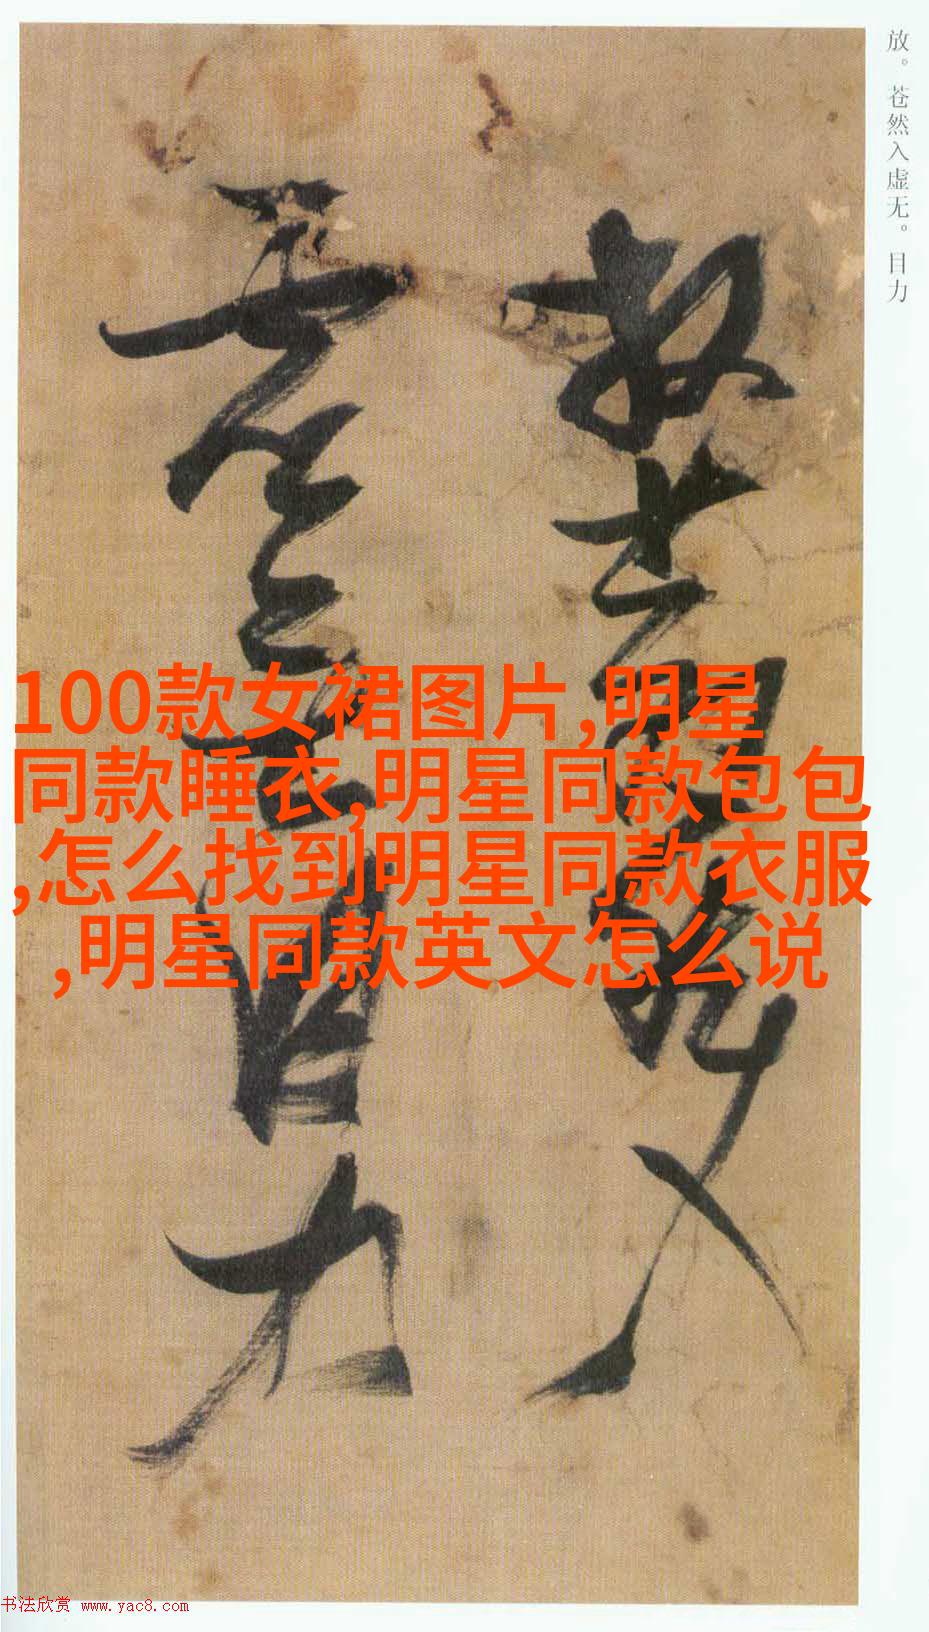 放。苍然入虚无。目力
放苍然入
虚无目力
100款女裙图片,明星
同款睡衣,明星同款包包
,怎么找到明星同款衣服
,明星同款英文怎么说
书法欣赏 www.yac8.com